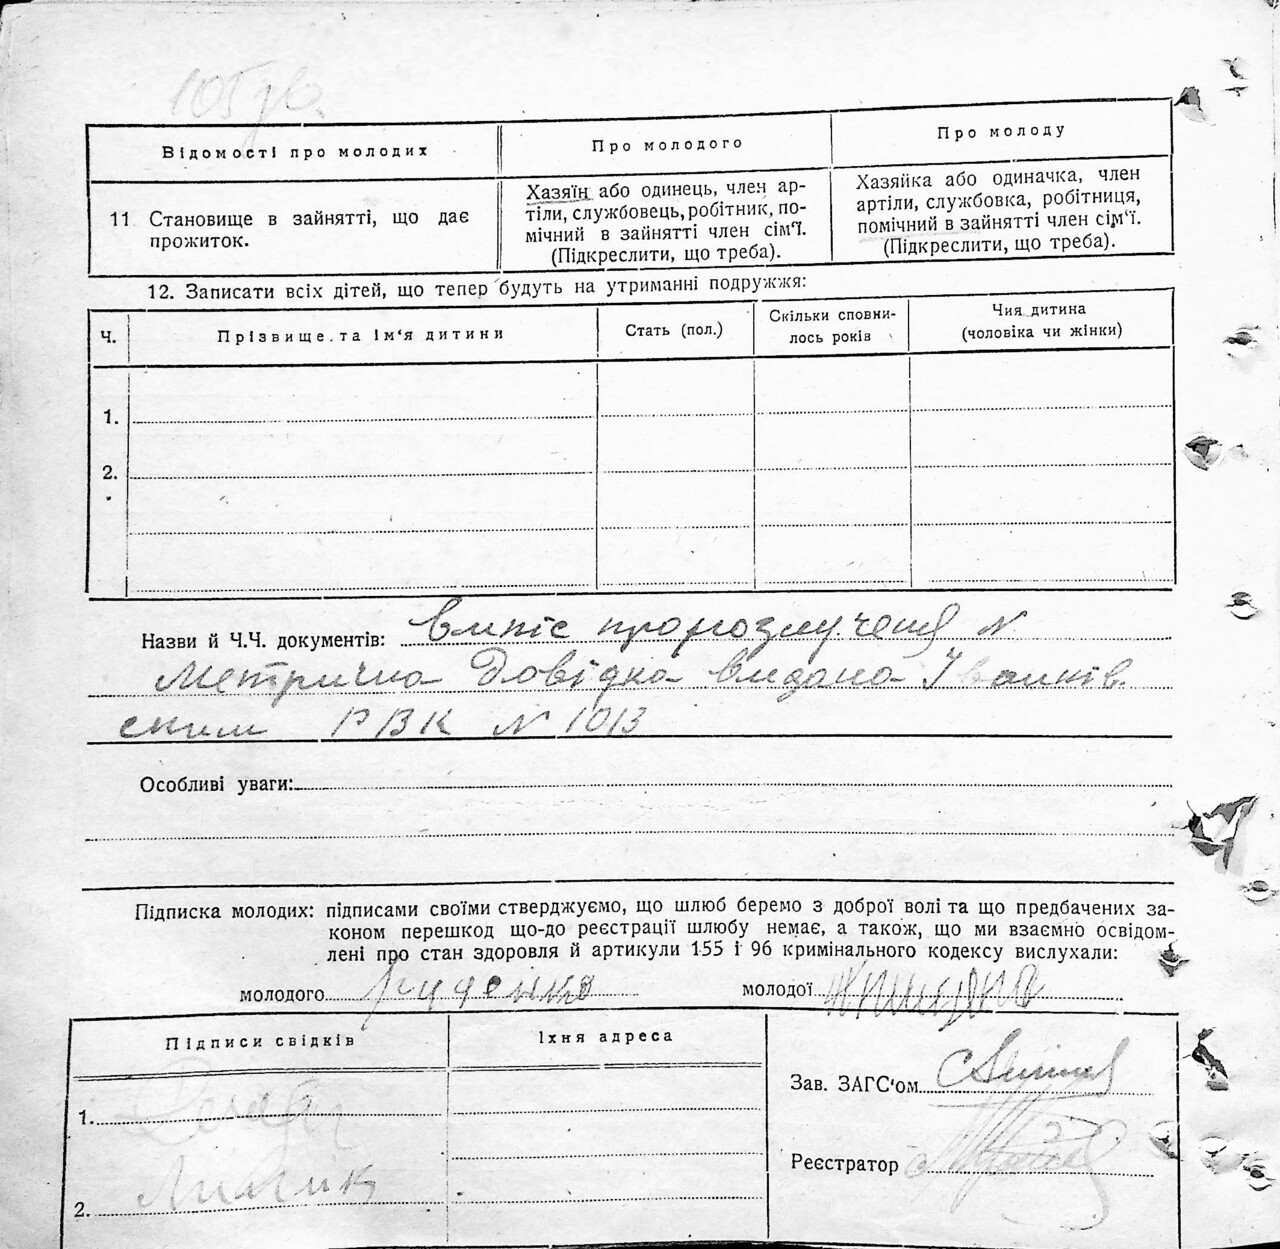 105 зв.
Відомості про молодих
Про молодого
Про молоду
11 Становище в зайнятті, що дає
прожиток.
Хазяїн або одинець, член ар-
тіли, службовець, робітник, по-
мічний в зайнятті член сім'ї.
(Підкреслити, що треба).
Хазяйка або одиначка, член
артіли, службовка, робітниця,
помічний в зайнятті член сім'ї.
(Підкреслити, що треба).
12. Записати всіх дітей, що тепер будуть на утриманні подружжя:
Ч.
Прізвище та ім'я дитини
Стать (пол.)
Скільки сповни-
лось років
Чия дитина
(чоловіка чи жінки)
1.
2.
Назви й Ч.Ч. документів: Випіс про розлучення N
Метрична Довідка видана Іванків
ским РВК N 1013
Особливі уваги:
Підписка молодих: підписами своїми стверджуємо, що шлюб беремо з доброї волі та що предбачених за-
коном перешкод що-до реєстрації шлюбу немає, а також, що ми взаємно освідом-
лені про стан здоровля й артикули 155 і 96 кримінального кодексу вислухали:
молодого Руденко
молодої
Підписи свідків
Їхня адреса
1.
2.
Зав. ЗАГС'ом
Реєстратор